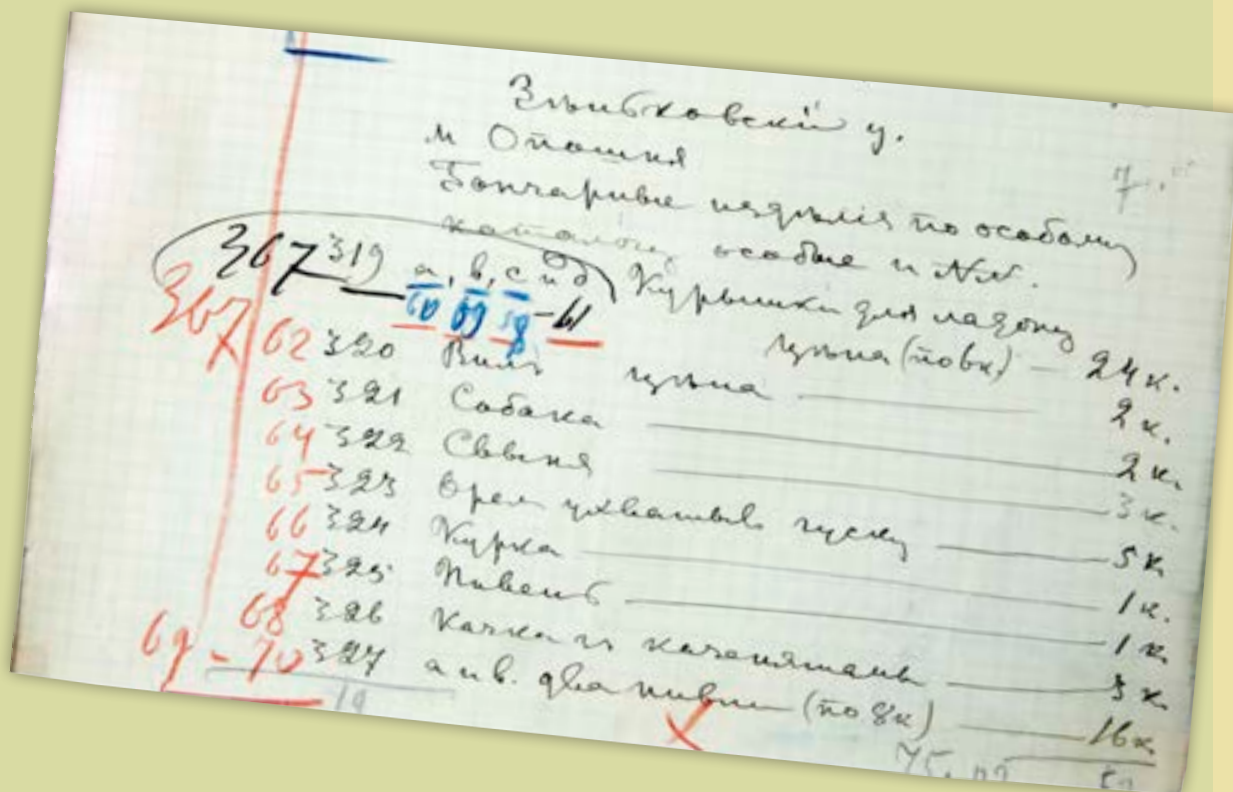 Зѣньковскій у.
м Опошня
Гончарные издѣлія по особому
каталогу особые и №№.
367 319 а, в, с и д Курышки для ладону
367 60 59 58 - 61 цѣна (по 6 к) — 24 к.
62 320 Вилъ цѣна — 2 к.
63 321 Собака — 2 к.
64 322 Свыня — 3 к.
65 323 Орел ухватывъ гуску — 5 к
66 324 Курка — 1 к.
67 325 Пивень — 1 к
68 326 Качка из каченятамы — 3 к
69 - 70 327 а и в. два пивни (по 8 к) — 16 к